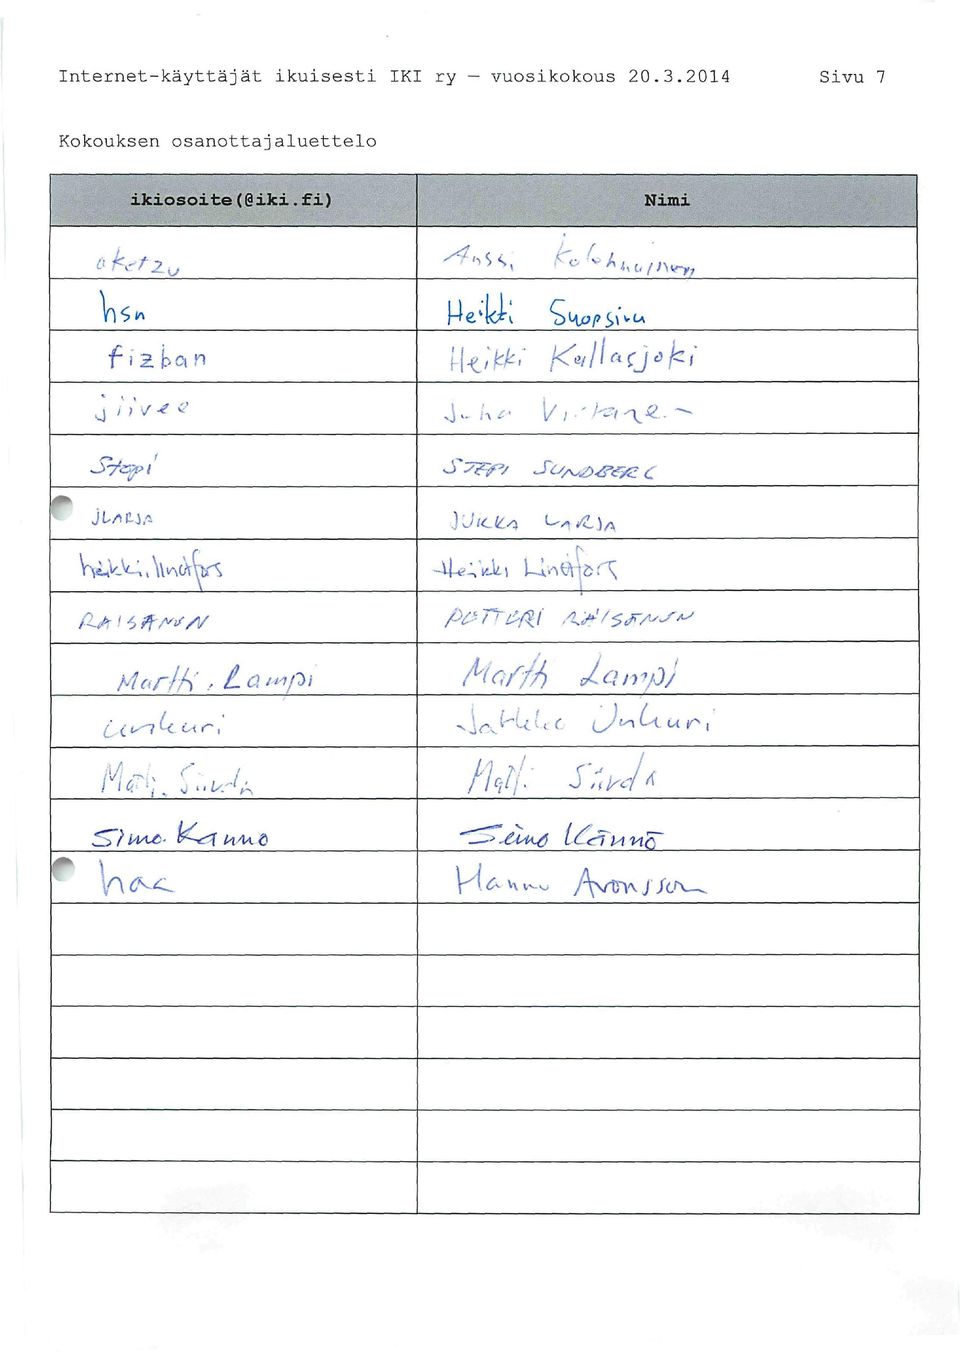 Internet-käyttäjät ikuisesti IKI ry — vuosikokous 20.3.2014 Sivu 7
Kokouksen osanottajaluettelo
ikiosoite(@iki.fi) Nimi
oketzu Anssi Kolehmainen
hsn Heikki Suopsivu
fizban Heikki Kallasjoki
jiivee Juha Virtane-
Stepi STEPI SUNDBERG
JLARJA JUKKA LARJA
heikki.lindfors Heikki Lindfors
RAISANEN PETTERI RÄISÄNEN
Martti.Lampi Martti Lampi
junkuri Junkuri
Matti.Siivola Matti Siivola
Simo.Kanno Seimo Kännö
haa Hannu Aronsson